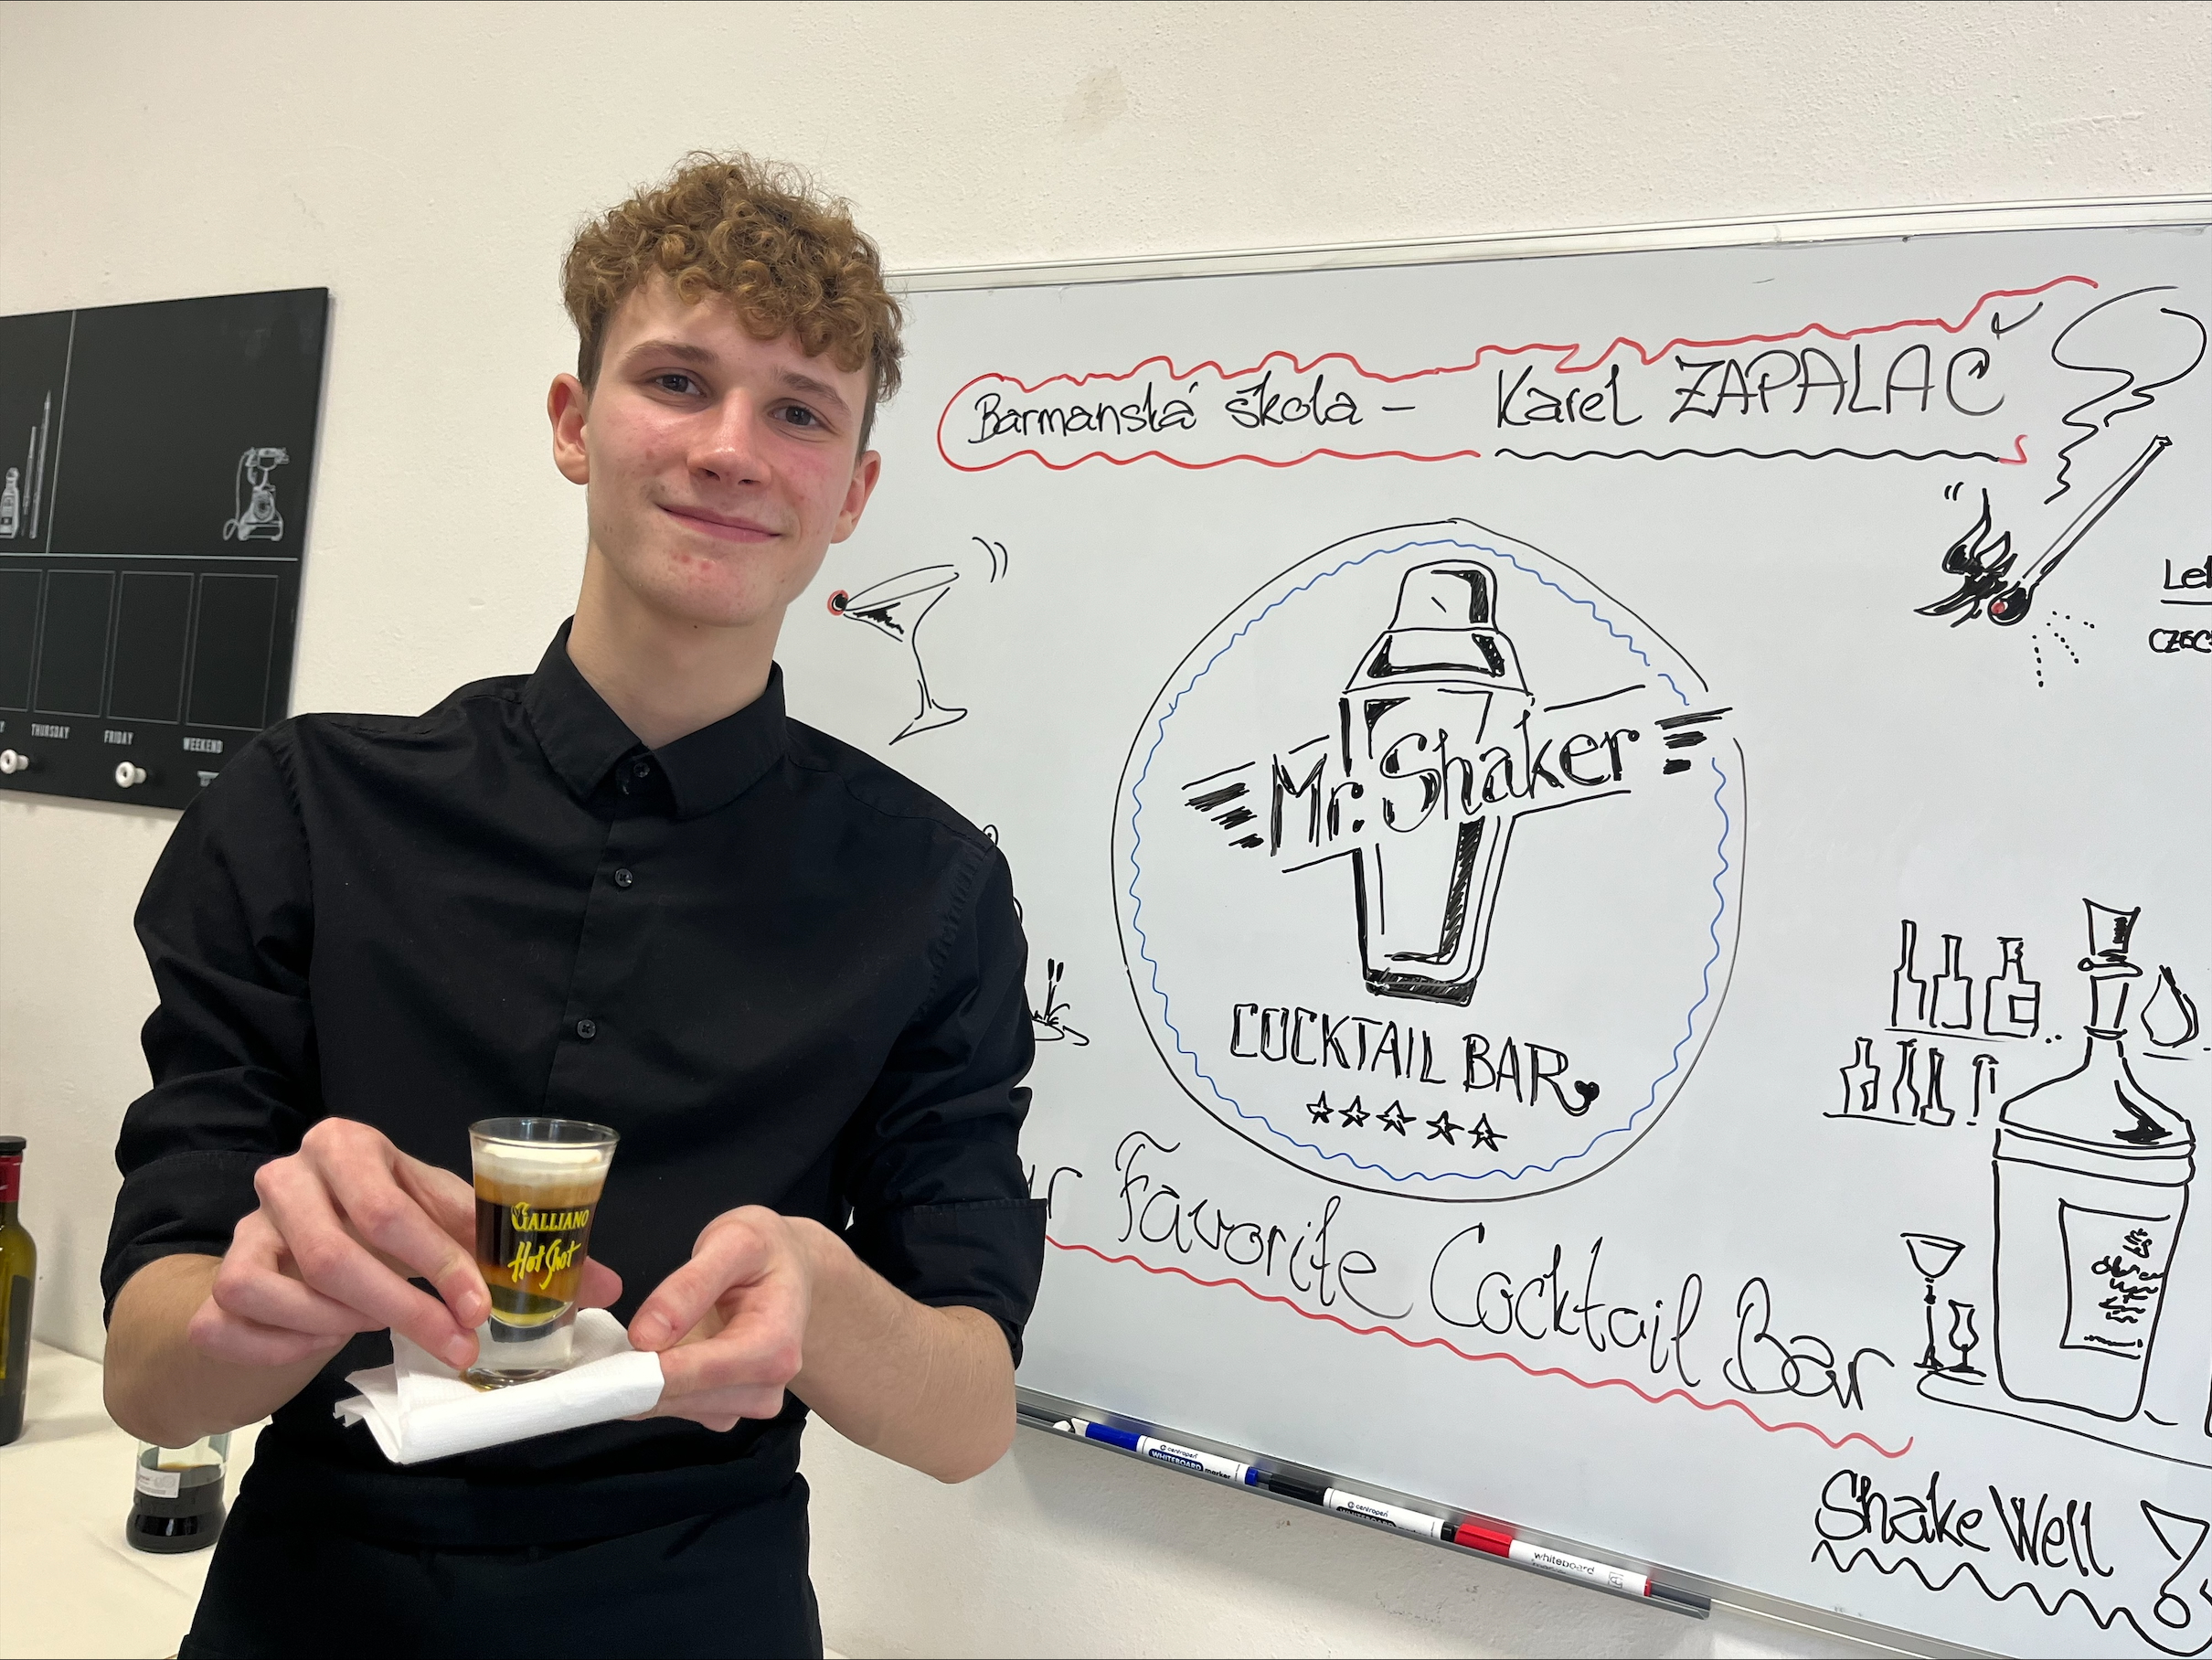 Barmanská škola – Karel ZAPALAČ
THURSDAY
FRIDAY
WEEKEND
Mr. Shaker
COCKTAIL BAR
Favorite Cocktail Bar
Shake Well
GALLIANO
Hot Shot
centropen
WHITEBOARD marker
centropen
WHITEBOARD
whiteboard